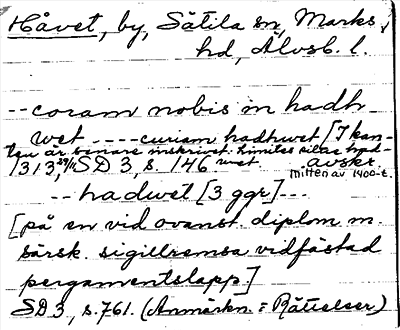 Håvet, by, Sätila sn, Marks
hd, Älvsb. l.
-- coram nobis in hadh
wet ---- curiam hadhwet [I kan-
ten är senare inskrivet: Limites silae had-
1313, 29/11 SD 3, s. 146 wet avskr.
mitten av 1400-t.
-- hadwet [3 ggr] --
[på en vid ovanst. diplom m.
särsk. sigillremsa vidfästad
pergamentslapp.]
SD 3, s. 761. (Anmärkn = Rättelser)